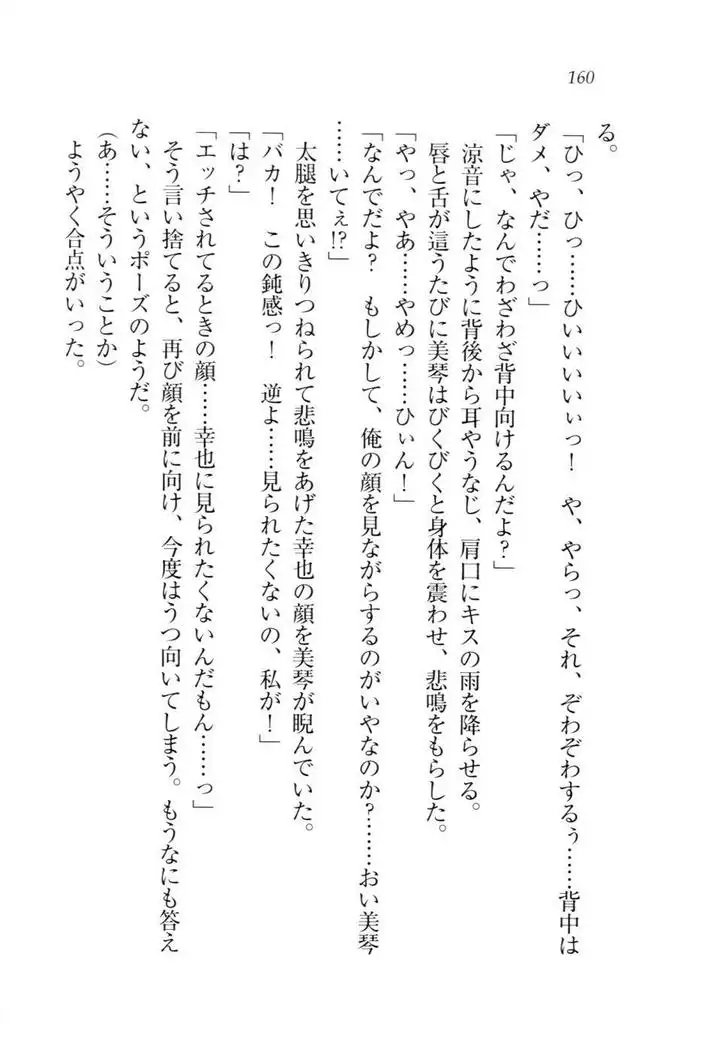 160
る。
「ひっ、ひっ……ひいいいいぃっ！　や、やらっ、それ、ぞわぞわするぅ……背中は
ダメ、やだ……っ」
「じゃ、なんでわざわざ背中向けるんだよ？」
涼音にしたように背後から耳やうなじ、肩口にキスの雨を降らせる。
唇と舌が這うたびに美琴はびくびくと身体を震わせ、悲鳴をもらした。
「やっ、やあ……やめっ……ひぃん！」
「なんでだよ？　もしかして、俺の顔を見ながらするのがいやなのか？……おい美琴
……いてぇ!?」
太腿を思いきりつねられて悲鳴をあげた幸也の顔を美琴が睨んでいた。
「バカ！　この鈍感っ！　逆よ……見られたくないの、私が！」
「は？」
「エッチされてるときの顔……幸也に見られたくないんだもん……っ」
そう言い捨てると、再び顔を前に向け、今度はうつ向いてしまう。もうなにも答え
ない、というポーズのようだ。
（あ……そういうことか）
ようやく合点がいった。